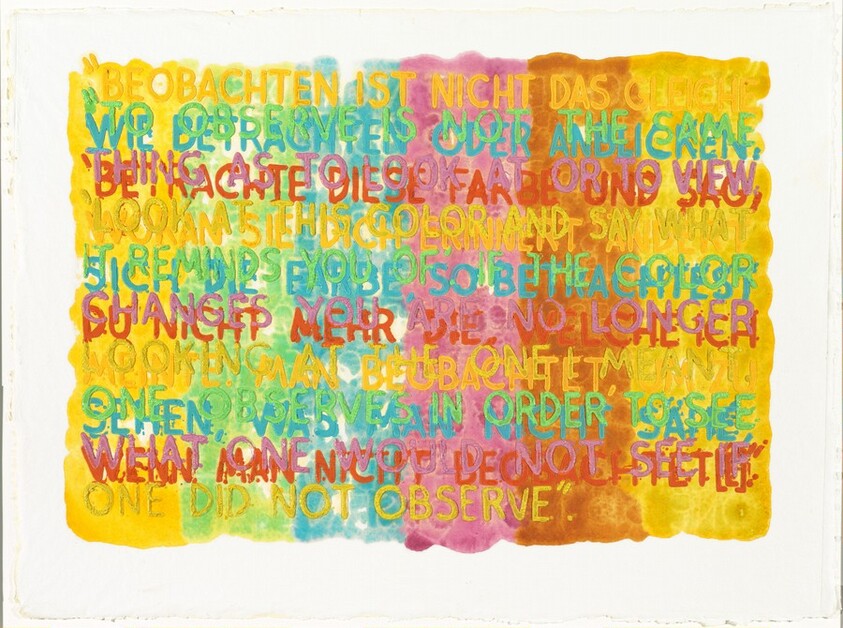 "BEOBACHTEN IST NICHT DAS GLEICHE
"TO OBSERVE IS NOT THE SAME
WIE BETRACHTEN ODER ANBLICKEN.
THING AS TO LOOK AT OR TO VIEW.
'BETRACHTE DIESE FARBE UND SAG,
'LOOK AT THIS COLOR AND SAY WHAT
WORAN SIE DICH ERINNERT' ÄNDERT
IT REMINDS YOU OF'. IF THE COLOR
SICH DIE FARBE, SO BETRACHTEST
CHANGES YOU ARE NO LONGER
DU NICHT MEHR DIE, WELCHE ICH
LOOKING AT THE ONE I MEANT.
MEINTE. MAN BEOBACHTET, UM ZU
ONE OBSERVES IN ORDER TO SEE
SEHEN, WAS MAN NICHT SÄHE,
WHAT ONE WOULD NOT SEE IF
WENN MAN NICHT BEOBACHTET[E]."
ONE DID NOT OBSERVE".